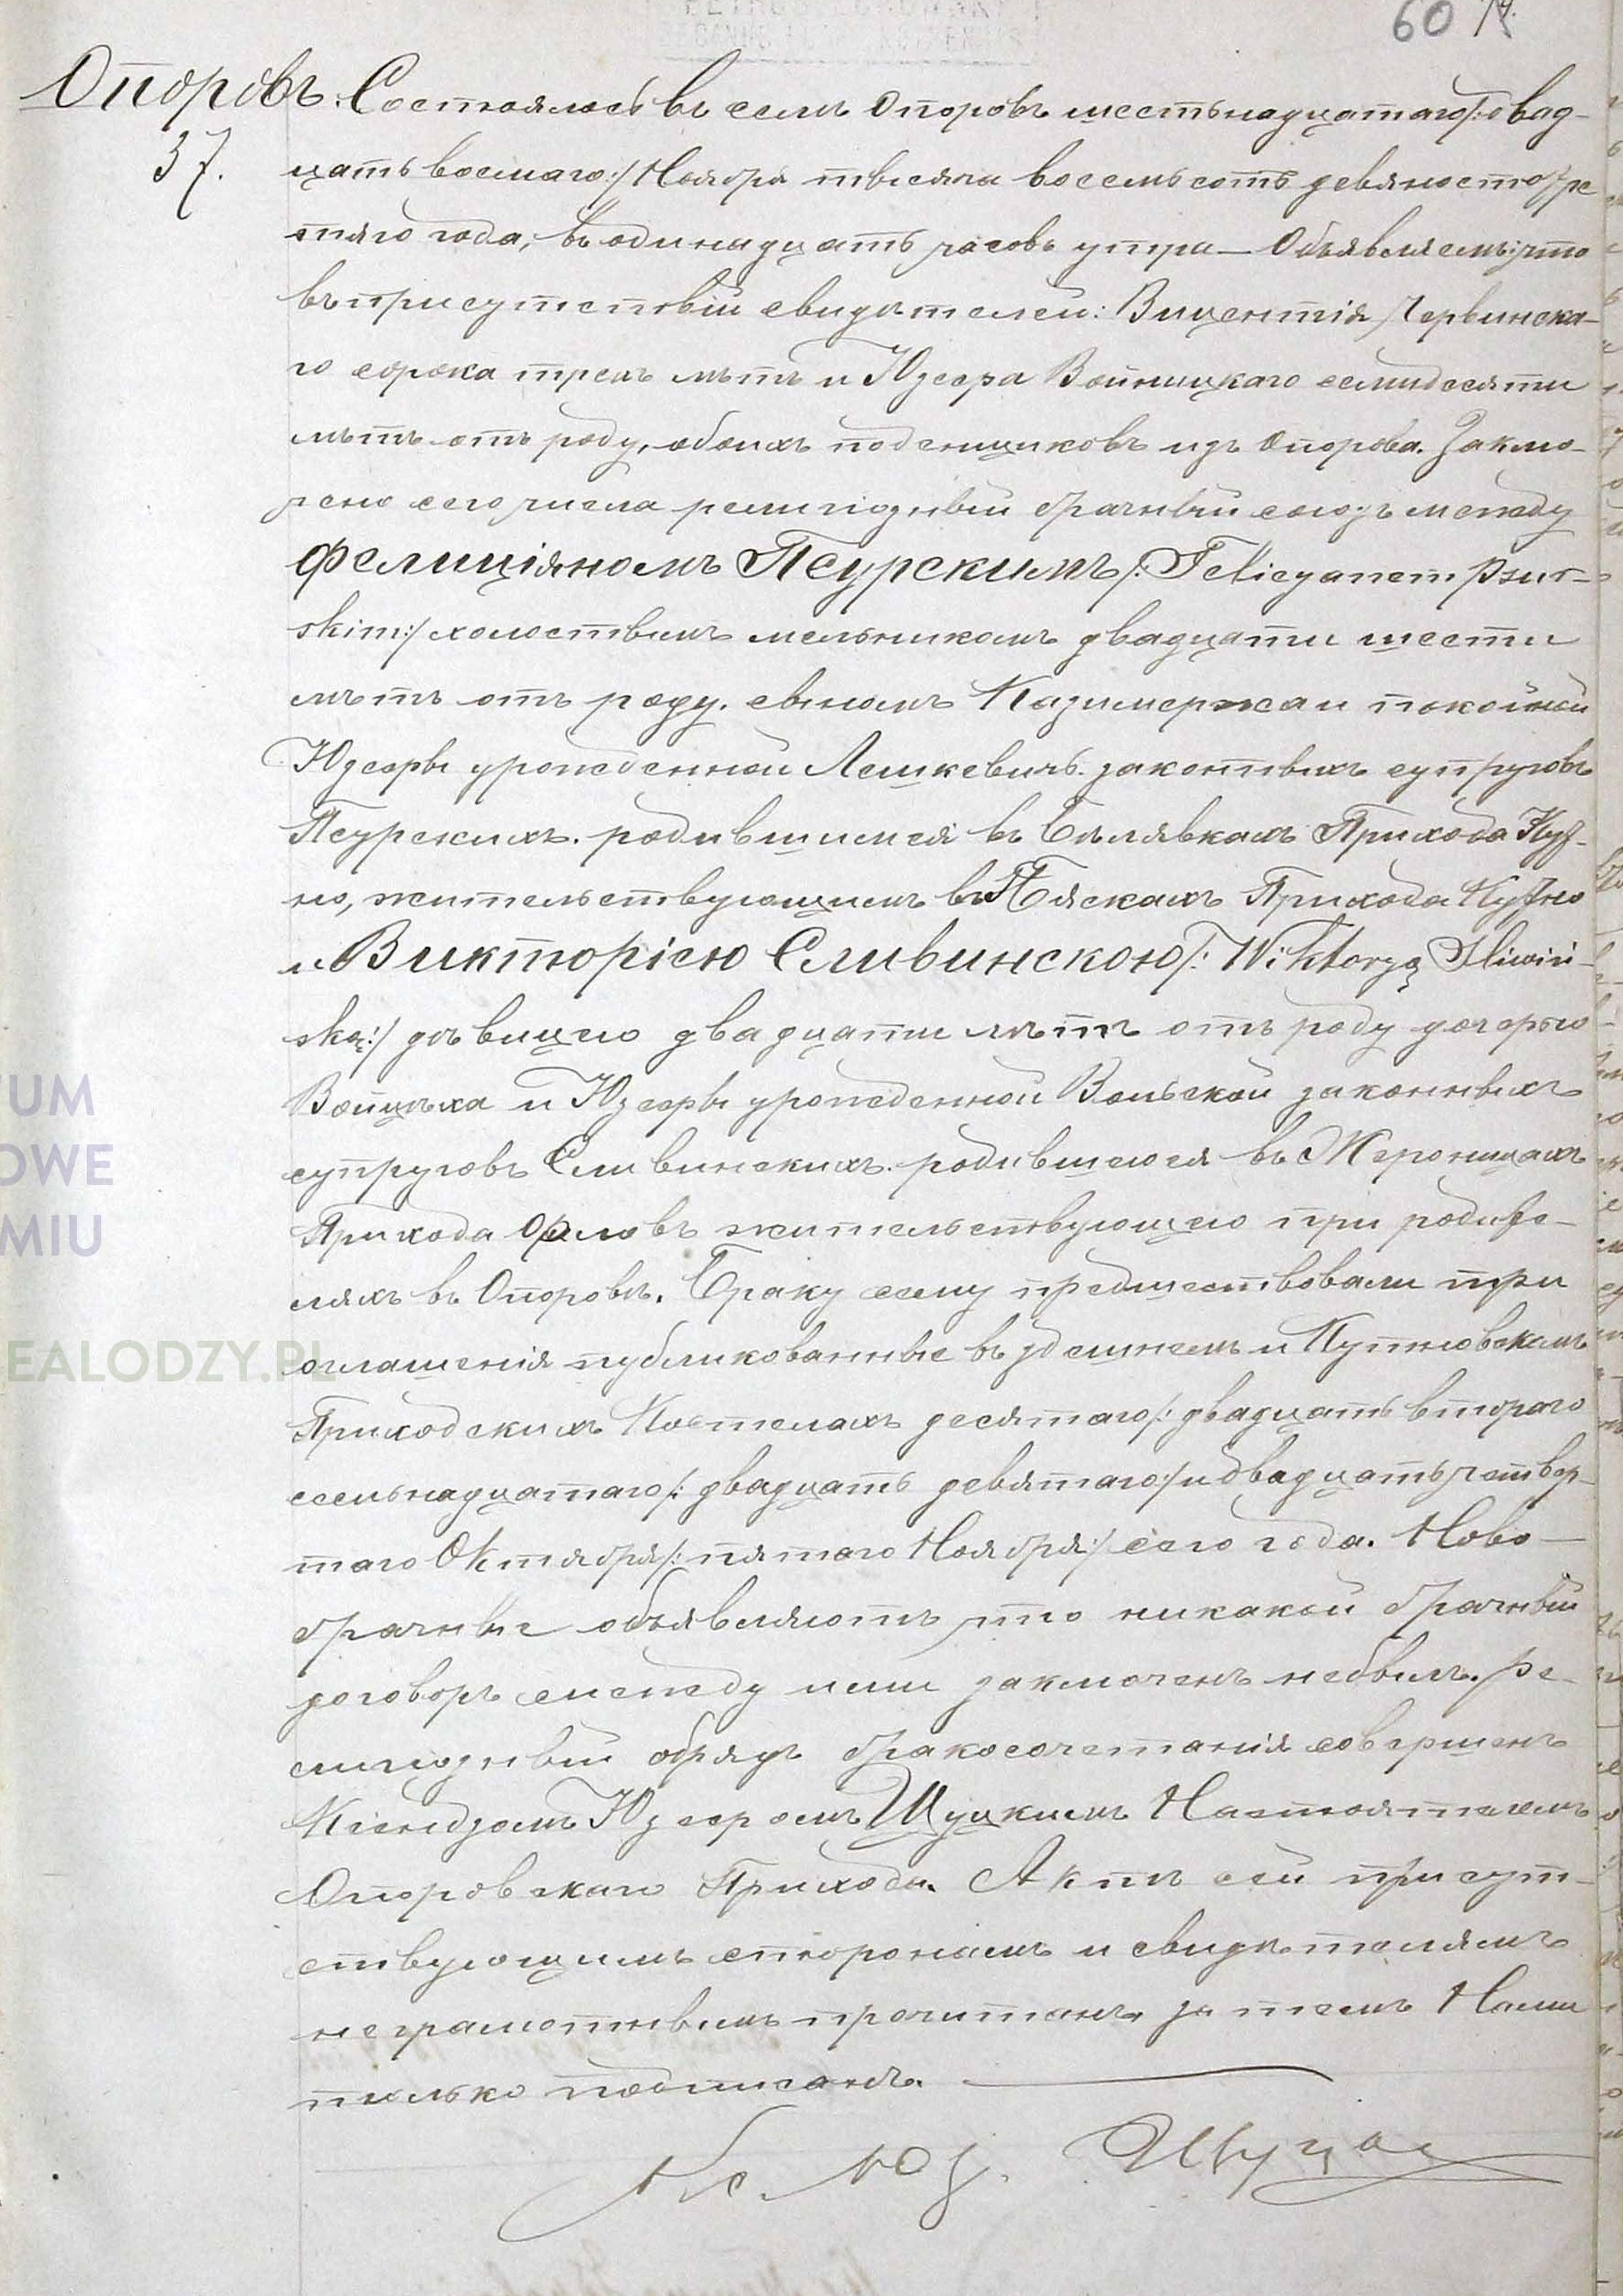 60
Опоровъ.
37.
Состоялось въ селѣ Опоровѣ шестьнадцатаго/: двад-
цать восьмаго:/ Ноября тысяча восемьсотъ девяносто тре
тяго года, въ одинадцать часовъ утра — Объявляемъ: что
въ присутствіи свидѣтелей: Вицентія Червинска-
го сорока трехъ лѣтъ и Юзефа Войницкаго семидесяти
лѣтъ отъ роду, обоихъ поденщиковъ изъ Опорова. Заклю-
чено сего числа религіозный брачный союзъ между
Фелиціяномъ Псурскимъ /: Felicyanem Psur-
skim:/ холостымъ мельникомъ двадцати шести
лѣтъ отъ роду. сыномъ Казимержа и покойной
Юзефы урожденной Лешкевичъ. законныхъ супруговъ
Псурскихъ. родившимся въ Бѣлявкахъ Прихода Кут-
но, жительствующимъ въ Пяскахъ Прихода Кутно
и Викторіею Сливинскою /: Wiktoryą Sliwiń-
ską:/ дѣвицею двадцати лѣтъ отъ роду дочерью
Войцѣха и Юзефы урожденной Вольской законныхъ
супруговъ Сливинскихъ. родившеюся въ Жероницахъ
Прихода Орловъ жительствующею при родите-
ляхъ въ Опоровѣ. Браку сему предшествовали три
оглашенія публикованные въ здешнемъ и Кутновскомъ
Приходскихъ Костелахъ десятаго /: двадцать втораго
семьнадцатаго /: двадцать девятаго:/ и двадцать четвер-
таго Октября /: пятаго Ноября:/ сего года. Ново-
брачные объявляютъ что никакой брачный
договоръ между ими заключенъ небылъ. Ре-
лигіозный обрядъ бракосочетанія совершенъ
Ксендзомъ Юзефомъ Щуцкимъ Настоятелемъ
Опоровскаго Прихода. Актъ сей присут-
ствующимъ сторонамъ и свидѣтелямъ
неграмотнымъ прочитанъ, за темъ Нами
только подписанъ.
Кс. Юз. Щуцкі
UM
OWE
MIU
EALODZY.PL